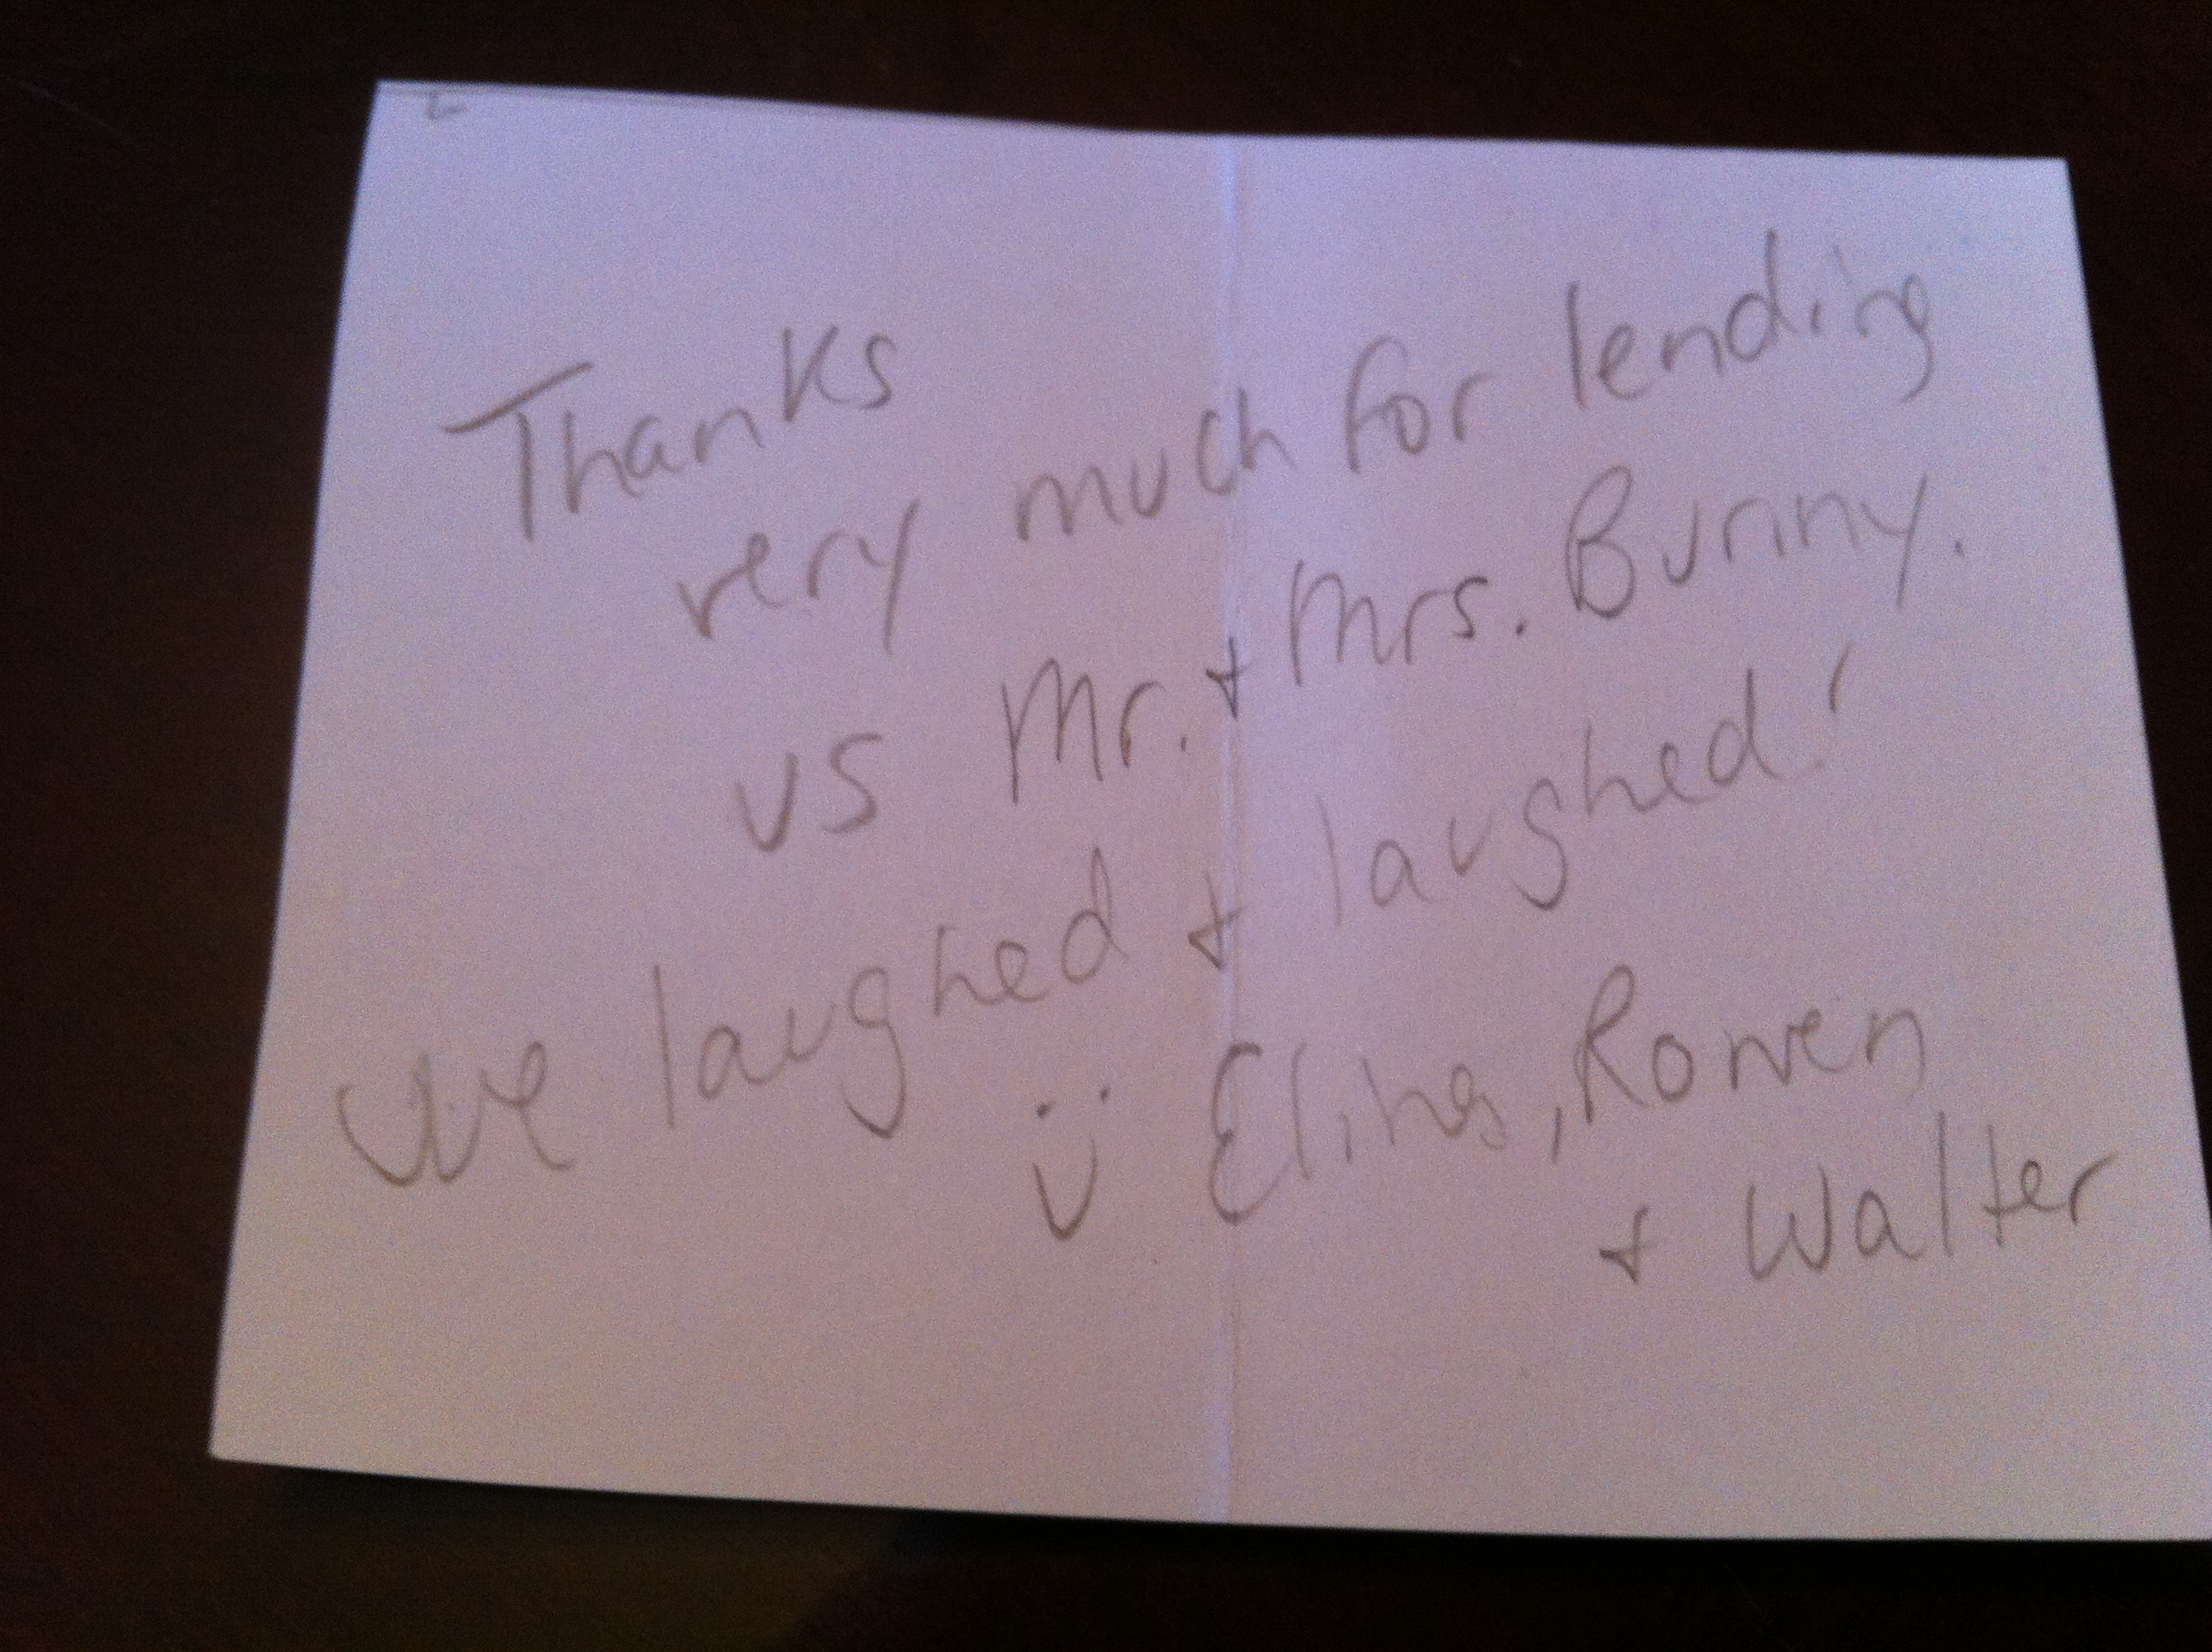 Thanks
very much for lending
us Mr. + Mrs. Bunny.
We laughed + laughed!
:) Rowen
+ Walter